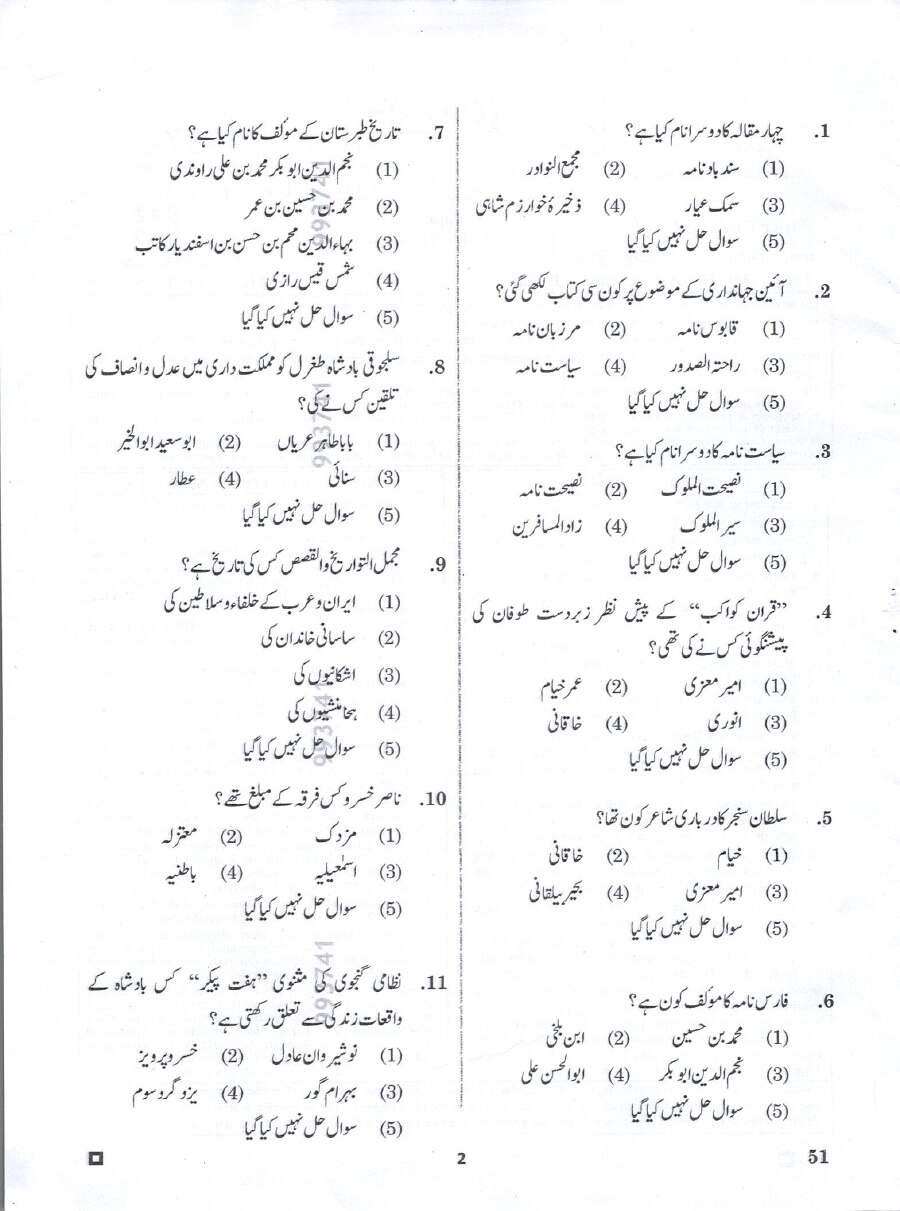 1. چہار مقالہ کا دوسرا نام کیا ہے؟
(1) سندباد نامہ (2) مجمع النوادر
(3) سمک عیار (4) ذخیرۂ خوارزم شاہی
(5) سوال حل نہیں کیا گیا
2. آئین جہانداری کے موضوع پر کون سی کتاب لکھی گئی؟
(1) قابوس نامہ (2) مرزبان نامہ
(3) راحتہ الصدور (4) سیاست نامہ
(5) سوال حل نہیں کیا گیا
3. سیاست نامہ کا دوسرا نام کیا ہے؟
(1) نصیحت الملوک (2) نصیحت نامہ
(3) سیر الملوک (4) زاد المسافرین
(5) سوال حل نہیں کیا گیا
4. ”قران کواکب“ کے پیش نظر زبردست طوفان کی
پیشنگوئی کس نے کی تھی؟
(1) امیر معزی (2) عمر خیام
(3) انوری (4) خاقانی
(5) سوال حل نہیں کیا گیا
5. سلطان سنجر کا درباری شاعر کون تھا؟
(1) خیام (2) خاقانی
(3) امیر معزی (4) بجیر بیلقانی
(5) سوال حل نہیں کیا گیا
6. فارس نامہ کا مؤلف کون ہے؟
(1) محمد بن حسین (2) ابن بلخی
(3) نجم الدین ابو بکر (4) ابوالحسن علی
(5) سوال حل نہیں کیا گیا
7. تاریخ طبرستان کے مؤلف کا نام کیا ہے؟
(1) نجم الدین ابو بکر محمد بن علی راوندی
(2) محمد بن حسین بن عمر
(3) بہاء الدین محم بن حسن بن اسفندیار کاتب
(4) شمس قیس رازی
(5) سوال حل نہیں کیا گیا
8. سلجوقی بادشاہ طغرل کو مملکت داری میں عدل و انصاف کی
تلقین کس نے کی؟
(1) بابا طاہر عریاں (2) ابو سعید ابوالخیر
(3) سنائی (4) عطار
(5) سوال حل نہیں کیا گیا
9. مجمل التواریخ والقصص کس کی تاریخ ہے؟
(1) ایران و عرب کے خلفاء و سلاطین کی
(2) ساسانی خاندان کی
(3) اشکانیوں کی
(4) ہخامنشیوں کی
(5) سوال حل نہیں کیا گیا
10. ناصر خسرو کس فرقہ کے مبلغ تھے؟
(1) مزدک (2) معتزلہ
(3) اسمٰعیلیہ (4) باطنیہ
(5) سوال حل نہیں کیا گیا
11. نظامی گنجوی کی مثنوی ”ہفت پیکر“ کس بادشاہ کے
واقعات زندگی سے تعلق رکھتی ہے؟
(1) نوشیروان عادل (2) خسرو پرویز
(3) بہرام گور (4) یزدگرد سوم
(5) سوال حل نہیں کیا گیا
993741
993741
993741
993741
2
51